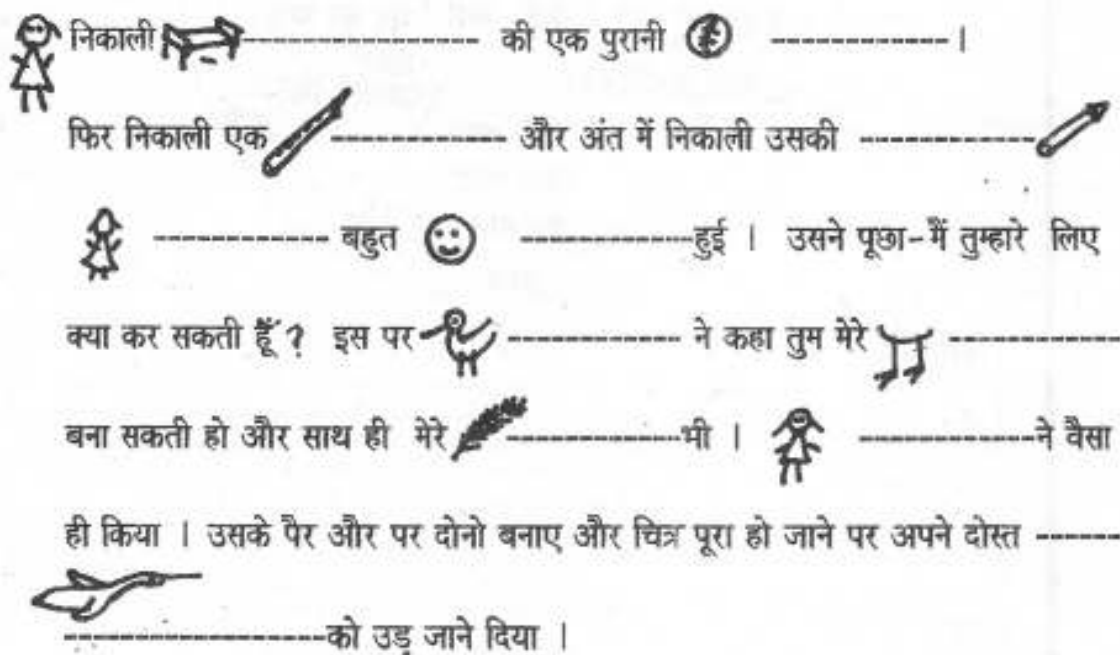 निकाली ---------------------- की एक पुरानी ---------------- ।
फिर निकाली एक -------------- और अंत में निकाली उसकी --------------
---------------- बहुत --------------हुई । उसने पूछा-मैं तुम्हारे लिए
क्या कर सकती हूँ ? इस पर ---------------- ने कहा तुम मेरे ----------------
बना सकती हो और साथ ही मेरे ----------------भी । ----------------ने वैसा
ही किया । उसके पैर और पर दोनो बनाए और चित्र पूरा हो जाने पर अपने दोस्त ------
------------------------को उड़ जाने दिया ।